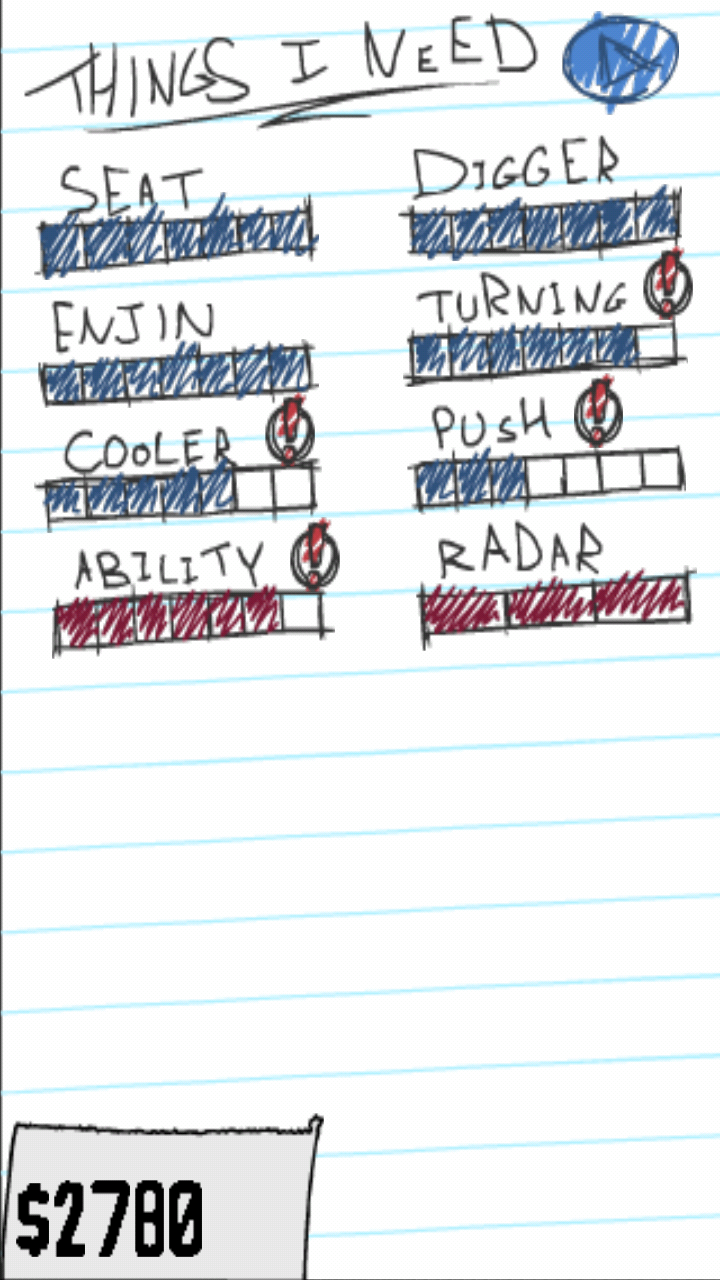 THINGS I NEED
SEAT
DIGGER
ENJIN
TURNING
!
COOLER
!
PUSH
!
ABILITY
!
RADAR
$2780